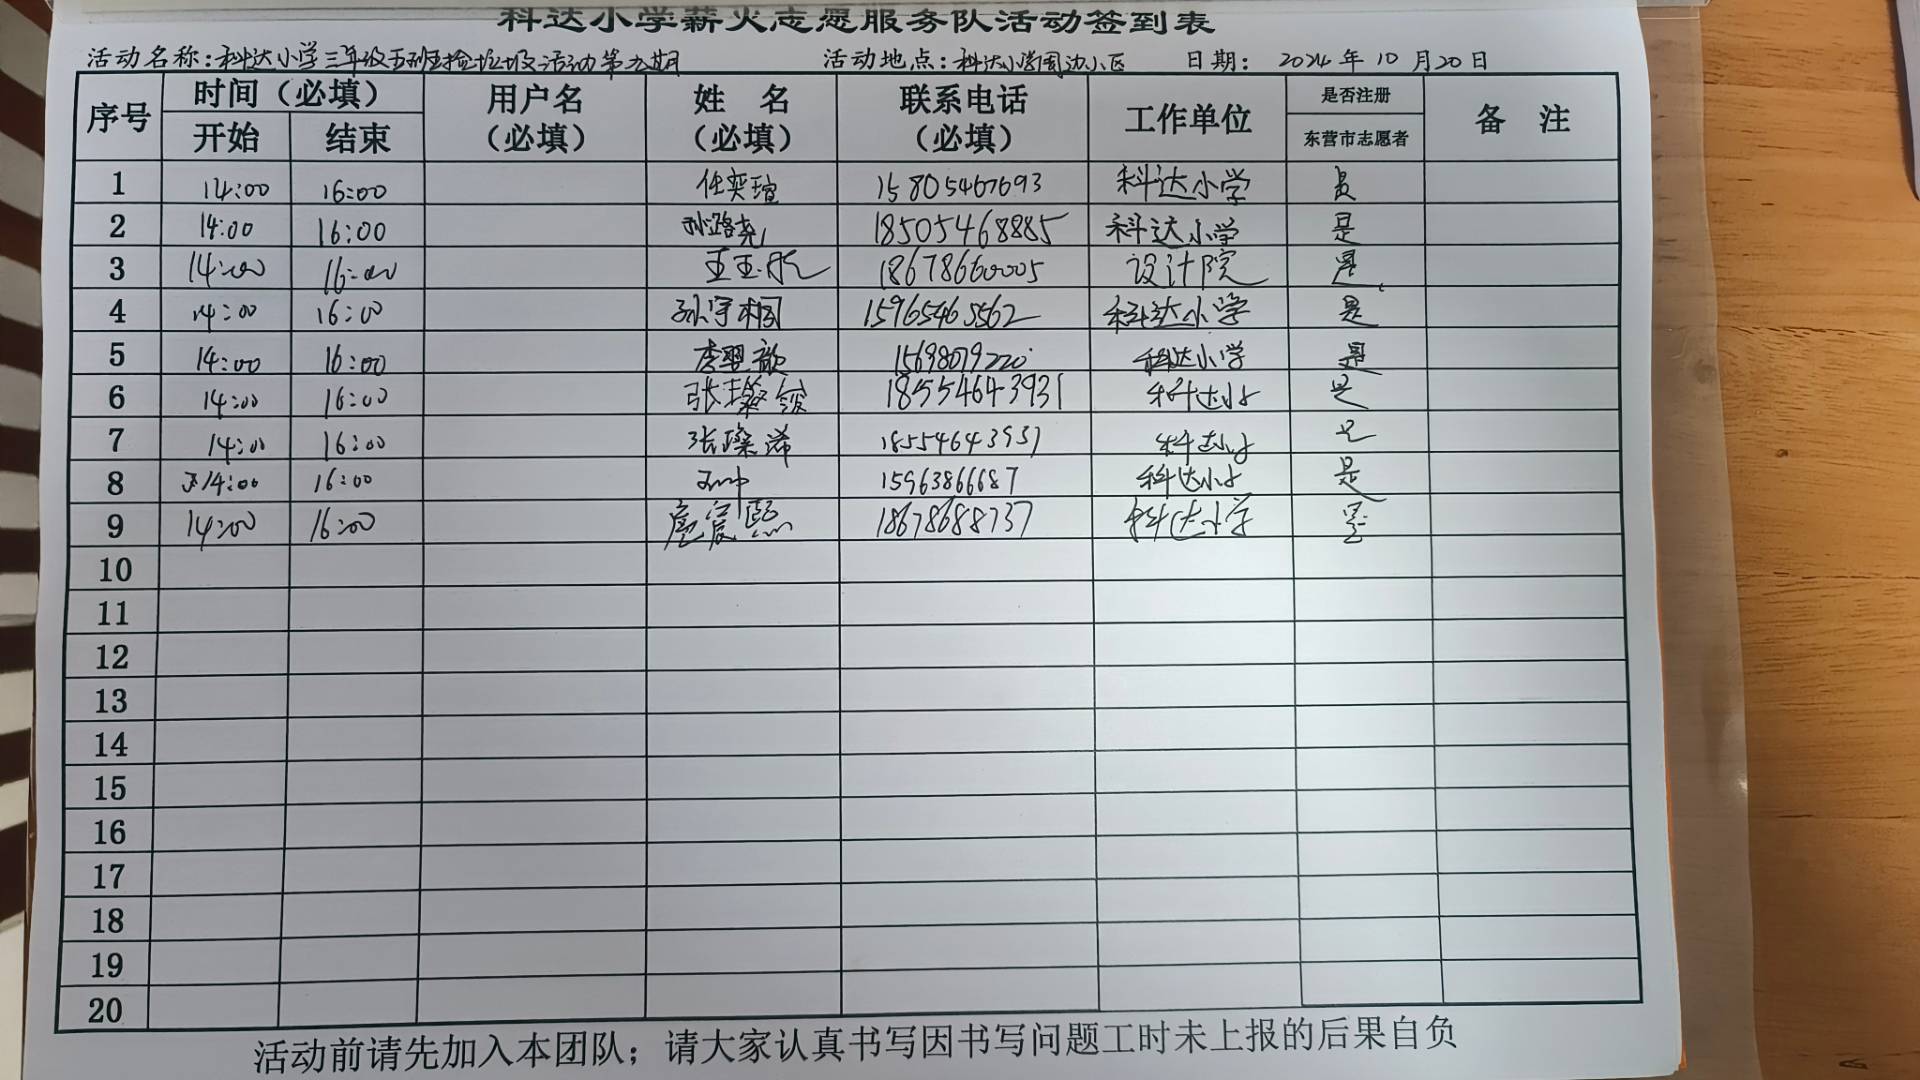 科达小学薪火志愿服务队活动签到表
活动名称：科达小学三年级五班捡垃圾活动第九期 活动地点：科达小学周边小区 日期： 2024 年 10 月 20 日
序号 时间（必填） 用户名（必填） 姓 名（必填） 联系电话（必填） 工作单位 是否注册 备 注
开始 结束 东营市志愿者
1 14:00 16:00 任奕瑄 15805467693 科达小学 是
2 14:00 16:00 孙路尧 18505468885 科达小学 是
3 14:00 16:00 18678660005 设计院 是
4 14:00 16:00 孙宇桐 15965463562 科达小学 是
5 14:00 16:00 李翌歆 15698079220 科达小学 是
6 14:00 16:00 张璨锾 18554643931 科达小学 是
7 14:00 16:00 张璨浠 18554643931 科达小学 是
8 14:00 16:00 15963866687 科达小学 是
9 14:00 16:00 扈宸熙 18678688737 科达小学 是
10
11
12
13
14
15
16
17
18
19
20
活动前请先加入本团队；请大家认真书写因书写问题工时未上报的后果自负